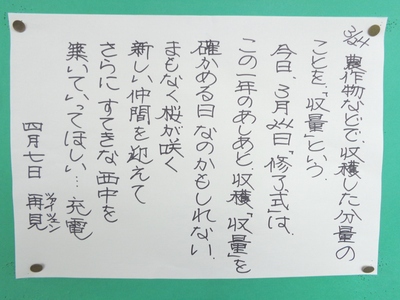 農作物などで、収穫した分量の
ことを「収量」という。
今日、3月24日「修了式」は、
この一年のあしあと、収穫、「収量」を
確かめる日なのかもしれない。
まもなく桜が咲く
新しい仲間を迎えて
さらに すてきな 西中を
築いていってほしい… 充電
四月七日 再見 ツァイチェン